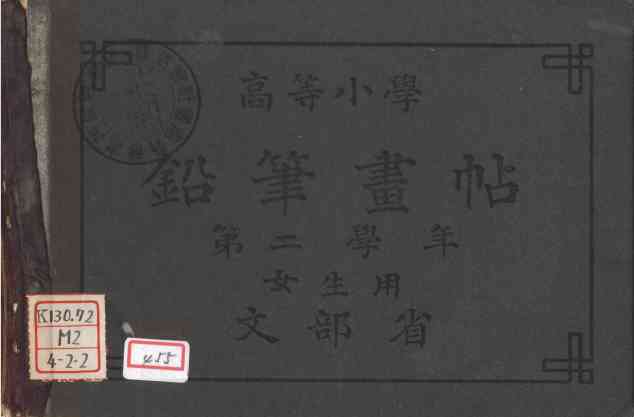 高等小學
鉛筆畫帖
第二學年
女生用
文部省
K130.72
M2
4-2-2
455